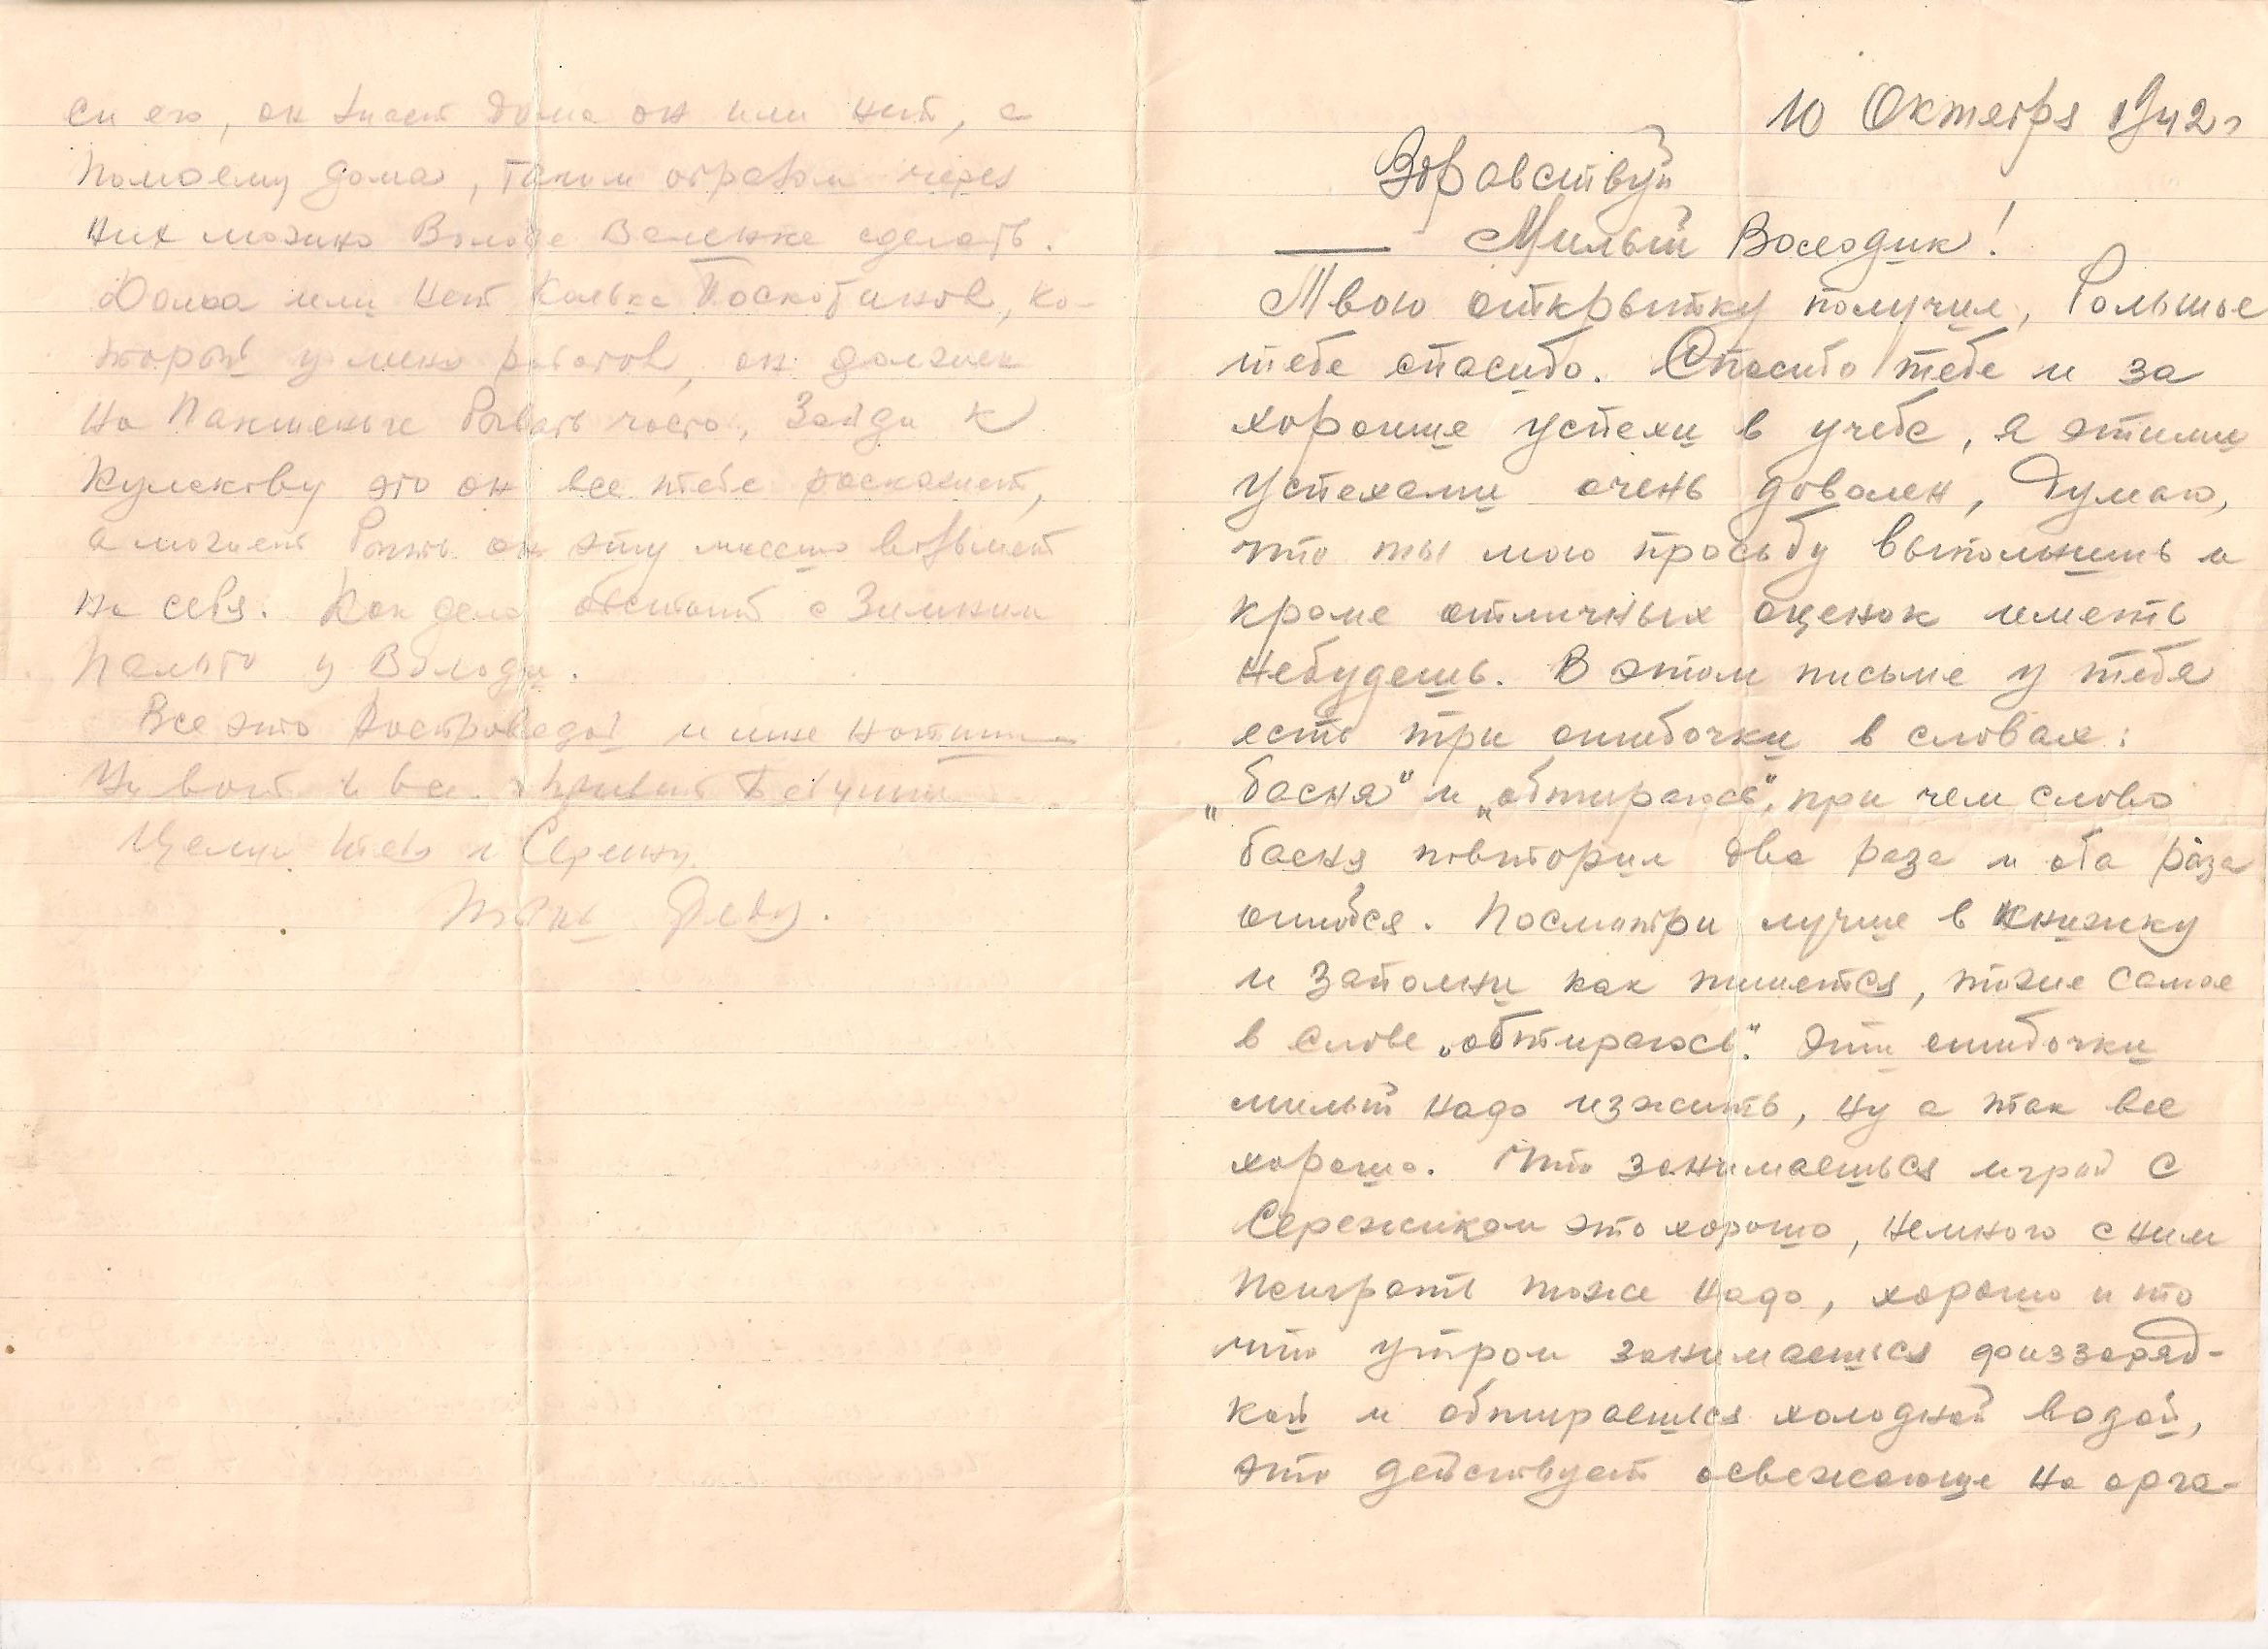 10 Октября 1942 г
Здравствуй
Милый Володик!
Твою открытку получил, большое
тебе спасибо. Спасибо тебе и за
хорошие успехи в учебе, я этими
успехами очень доволен, Думаю,
что ты мою просьбу выполнишь и
кроме отличных оценок иметь
небудешь. В этом письме у тебя
есть три ошибочки в словах:
„басня“ и „обтираюсь“, при чем слово
басня повторил два раза и оба раза
ошибся. Посмотри лучше в книжку
и запомни как пишется, тоже самое
в слове „обтираюсь“. Эти ошибочки
милый надо изжить, ну а так все
хорошо. Что занимаешься игрой с
Сережиком это хорошо, немного с ним
поиграть тоже надо, хорошо и то
что утром занимаешься физзаряд-
кой и обтираешься холодной водой,
это действует освежающе на орга-
си его, он знает дома он или нет, а
помоему дома, таким образом через
них можно Володе валенки сделать.
Дома или нет Колька Поскотинов, ко-
торый у меня работал, он должен
на Пакшеньге бывать часто, Зайди к
Кулакову это он все тебе раскажет,
а может быть он эту миссию возьмет
на себя. Как дела обстоят с Зимним
пальто у Володи.
Все это и мне напиши
Ну вот и все. Привет
Целую тебя и Сережу.
Твой Федя.